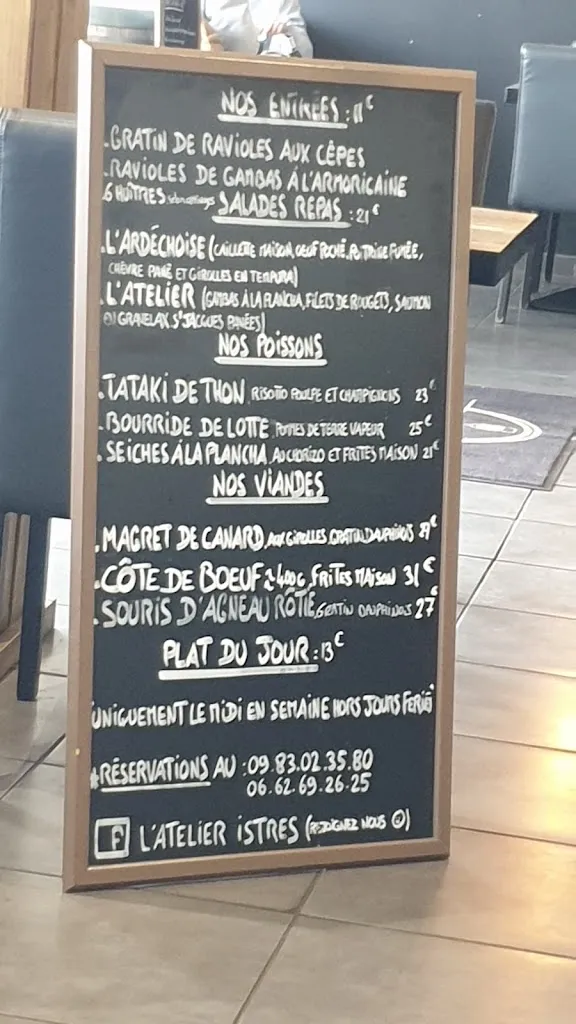 NOS ENTRÉES : 11€
.GRATIN DE RAVIOLES AUX CÊPES
.RAVIOLES DE GAMBAS À L'ARMORICAINE
.6 HUÎTRES
SALADES REPAS : 21€
.L'ARDÉCHOISE (CAILLETTE MAISON, OEUF POCHÉ, POITRINE FUMÉE,
CHÈVRE PANÉ ET GIROLLES EN TEMPURA)
.L'ATELIER (GAMBAS À LA PLANCHA, FILETS DE ROUGETS, SAUMON
GRAVELAX, ST JACQUES PANÉES)
NOS POISSONS
.TATAKI DE THON RISOTTO POULPE ET CHAMPIGNONS 23€
.BOURRIDE DE LOTTE POMMES DE TERRE VAPEUR 25€
.SEICHES À LA PLANCHA AU CHORIZO ET FRITES MAISON 21€
NOS VIANDES
.MAGRET DE CANARD, AUX GIROLLES, GRATIN DAUPHINOIS
.CÔTE DE BOEUF ±400G, FRITES MAISON 31€
.SOURIS D'AGNEAU RÔTIE, GRATIN DAUPHINOIS 27€
PLAT DU JOUR : 13€
UNIQUEMENT LE MIDI EN SEMAINE HORS JOURS FERIÉ
*RÉSERVATIONS AU : 09.83.02.35.80
06.62.69.26.25
F L'ATELIER ISTRES (REJOIGNEZ NOUS ☺)